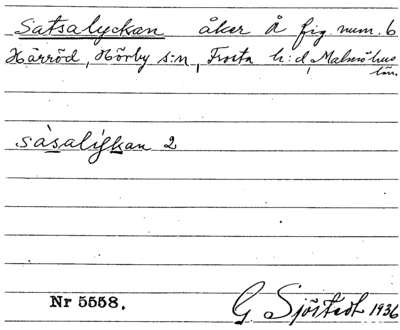 Satsalyckan åker Å fig. num. 6
Härröd, Hörby s:n, Frosta h:d, Malmöhus
län.
sàsalýkan 2
Nr 5558.
G Sjöstedt 1936